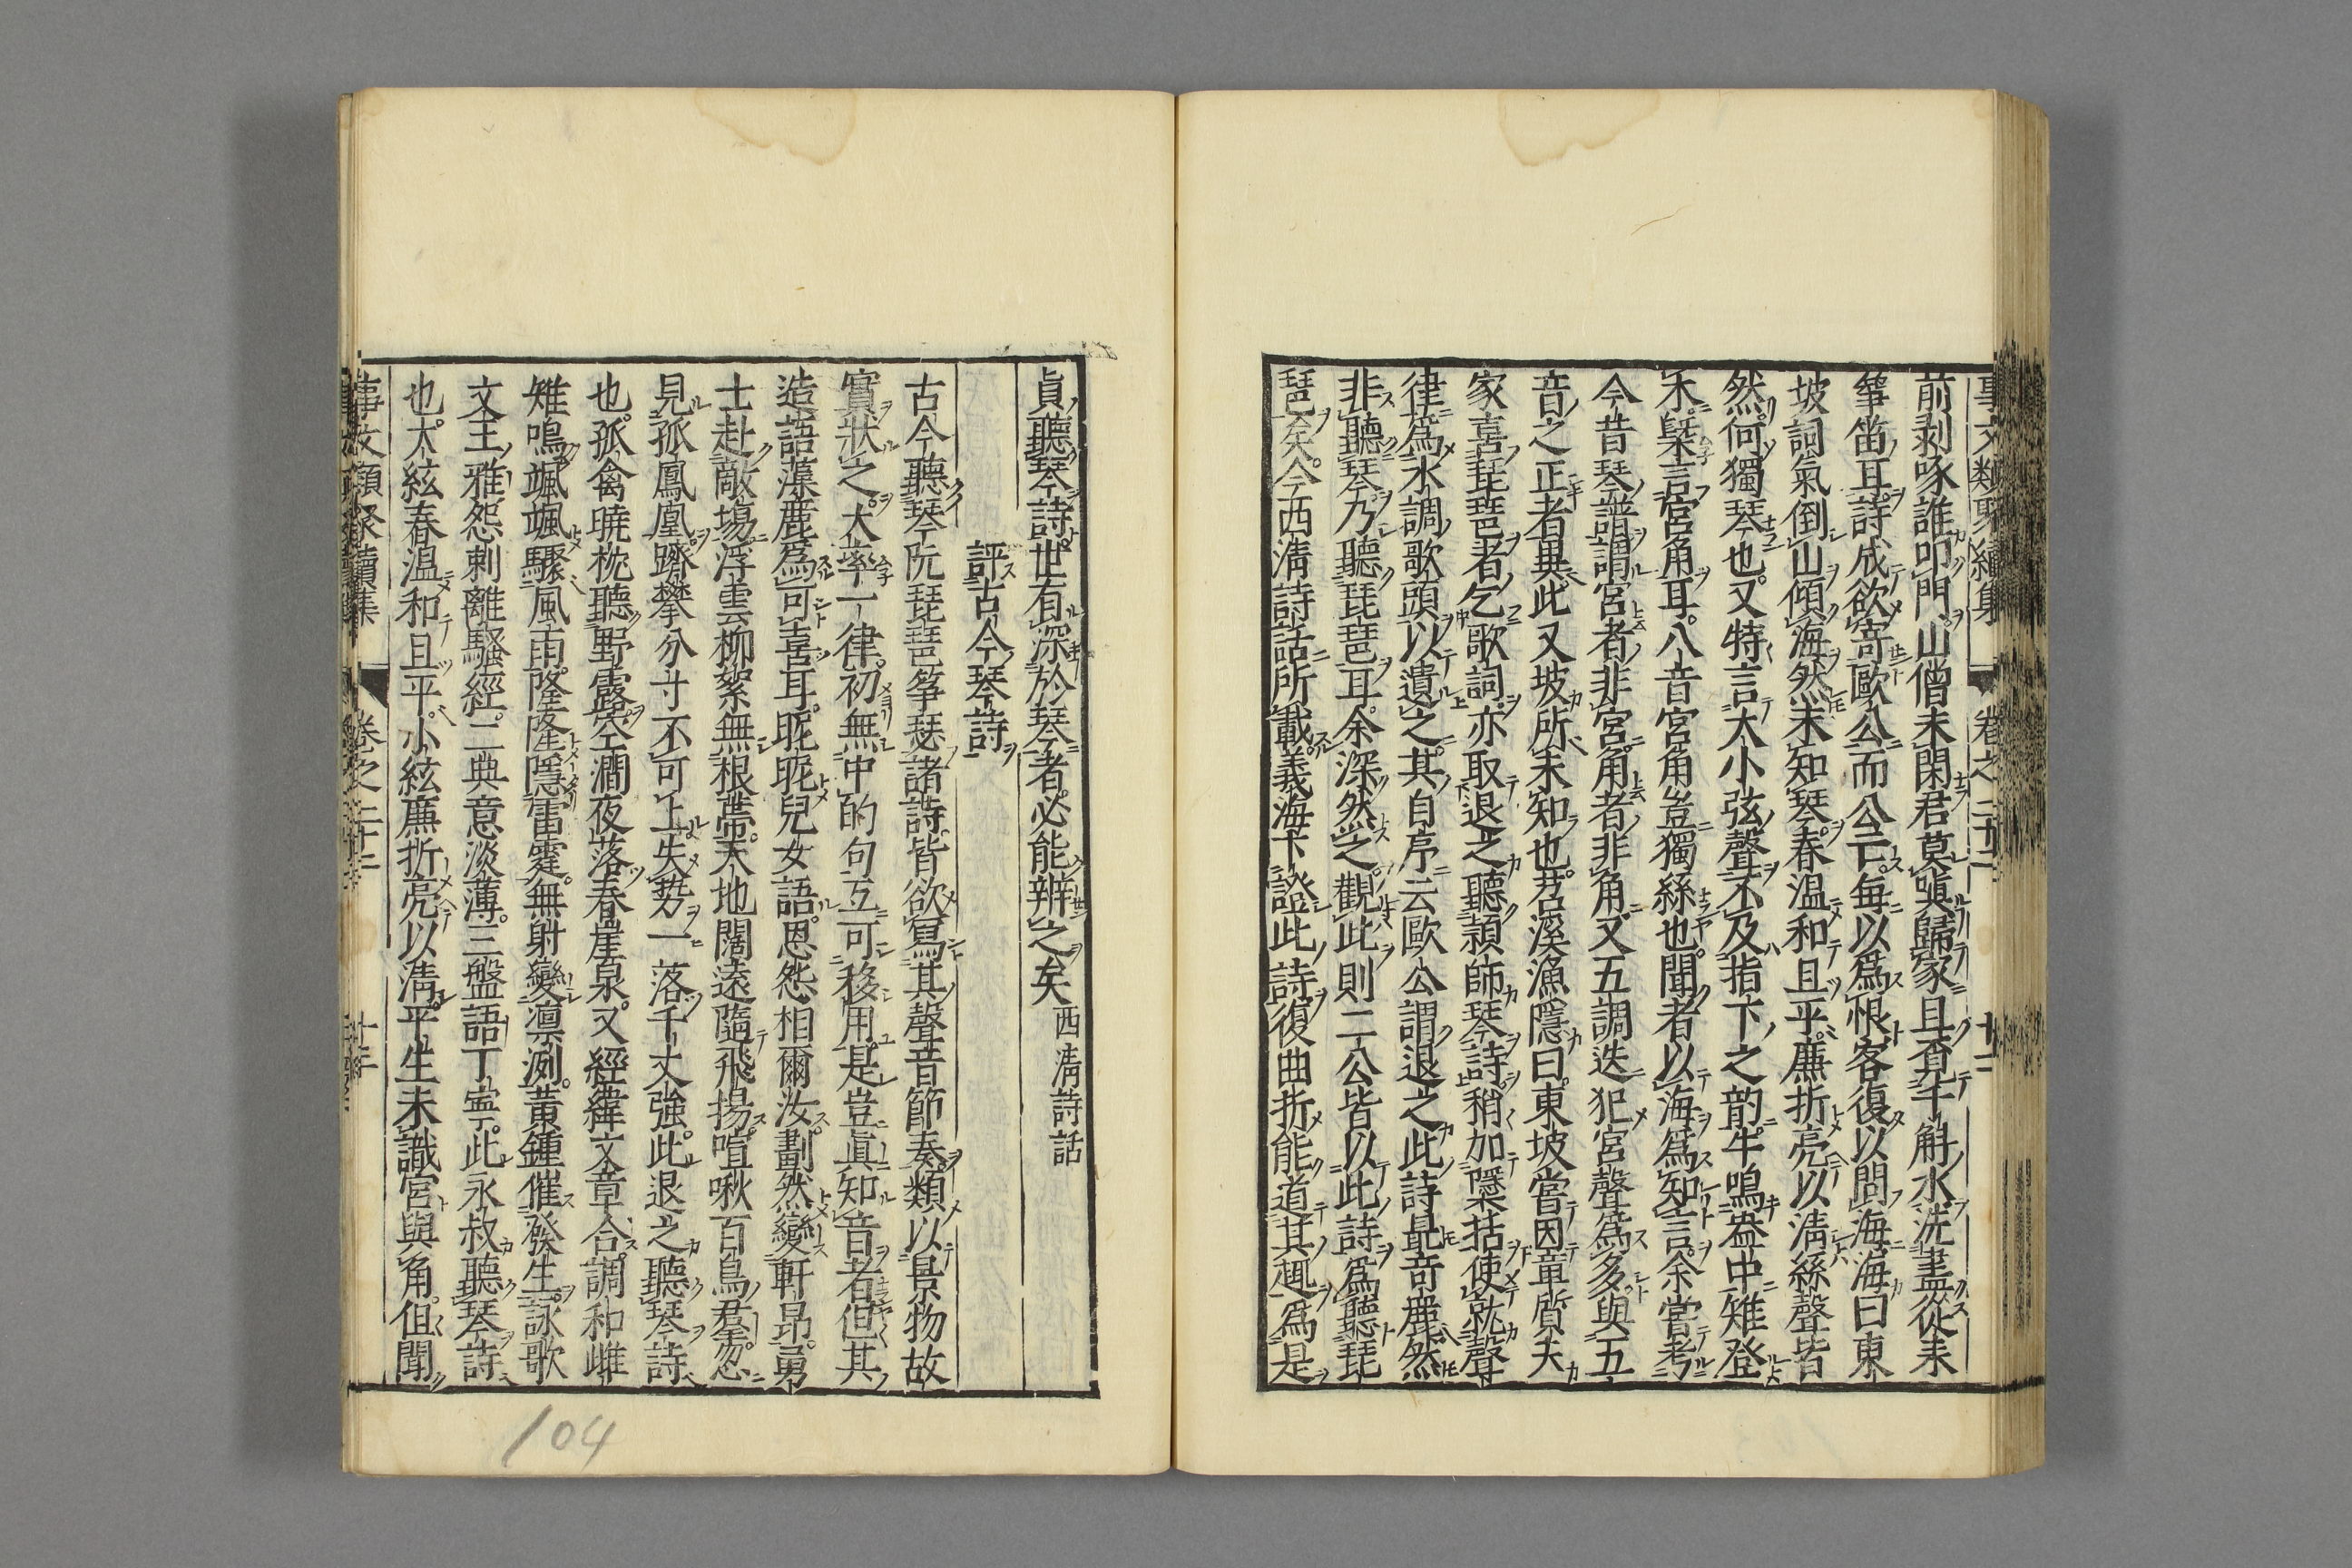 事文類聚續集 卷之二十二 廿二
前剥啄誰叩門山僧未閑君莫嗔歸家且覓千斛水洗盡從來
箏笛耳詩成欲寄歐公而公亡每以爲恨客復以問海海曰東
坡詞氣倒山傾海然未知琴春溫和且平廉折亮以清絲聲皆
然何獨琴也又特言大小弦聲不及指下之韵牛鳴盎中雉登
木槩言宮角耳八音宮角豈獨絲也聞者以海爲知言余嘗考
今昔琴譜謂宮者非宮角者非角又五調迭犯宮聲爲多與五
音之正者異此又坡所未知也苕溪漁隱曰東坡嘗因章質夫
家喜琵琶者乞歌詞亦取退之聽潁師琴詩稍加隱括使就聲
律爲水調歌頭以遺之其自序云歐公謂退之此詩最奇麗然
非聽琴乃聽琵琶耳余深然之觀此則二公皆以此詩爲聽琵
琶矣今西清詩話所載義海下證此詩復曲折能道其趣爲是
貞聽琴詩世有深於琴者必能辨之矣 西清詩話
評古今琴詩
古今聽琴阮琵琶箏瑟諸詩皆欲寫其聲音節奏類以景物故
實狀之大率一律初無中的句互可移用是豈眞知音者但其
造語藻麗爲可喜耳昵昵兒女語恩怨相爾汝劃然變軒昂勇
士赴敵場浮雲柳絮無根蔕天地闊遠隨飛揚喧啾百鳥羣忽
見孤鳳凰躋攀分寸不可上失勢一落千丈強此退之聽琴詩
也孤禽曉枕聽野露空澗夜落春崖泉又經緯文章合調和雌
雉鳴颯颯驟風雨隆隆隱雷霆無射變凛冽黄鍾催發生詠歌
文王雅怨刺離騷經二典意淡薄三盤語丁寧此永叔聽琴詩
也大絃春溫和且平小絃廉折亮以清平生未識宮與角但聞
事文類聚續集 卷之二十二
104